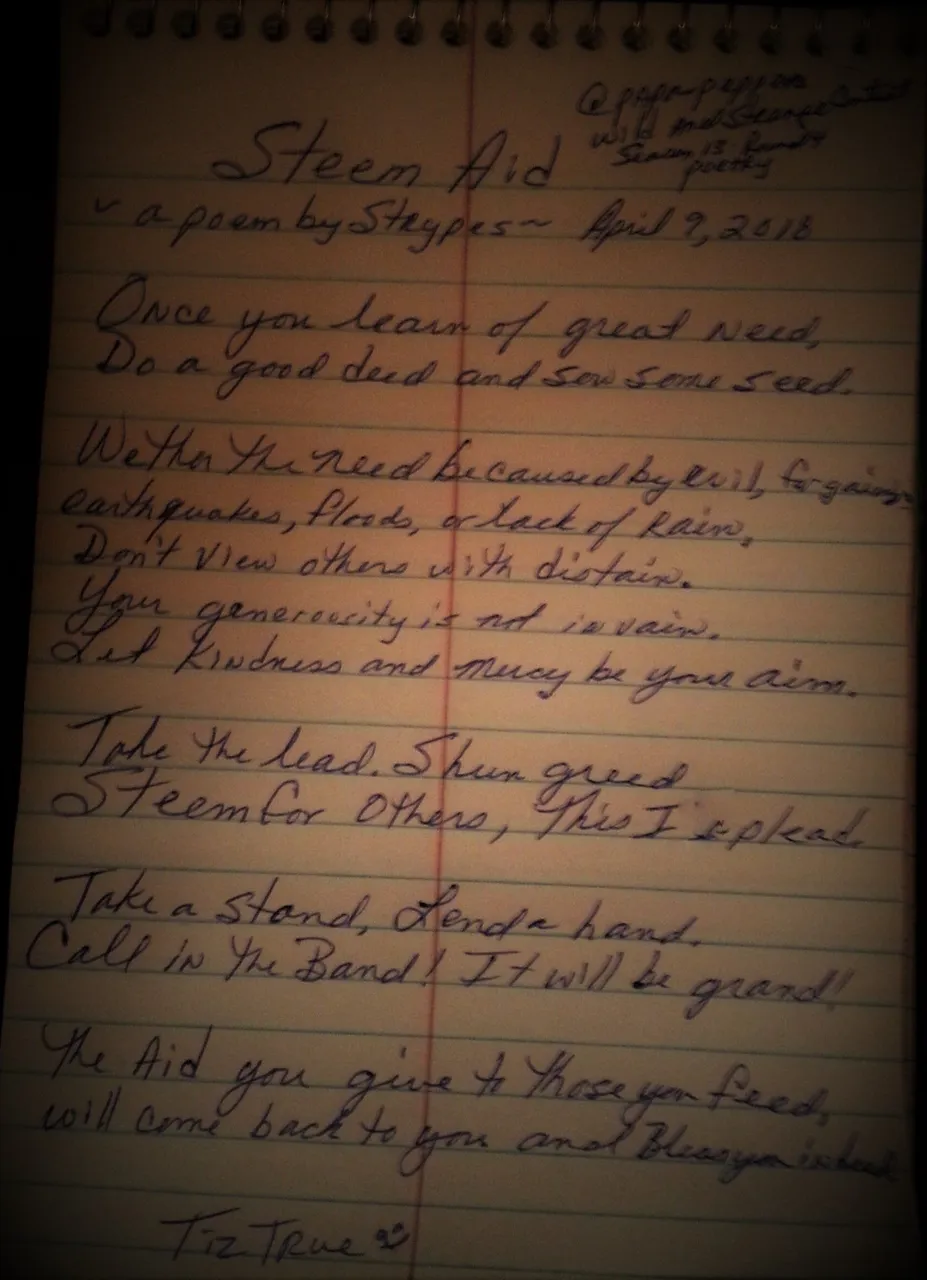 @papa-pepper
Wild And Strange Contest
Season 13 Round 4
poetry
Steem Aid
~ a poem by Strypes ~ April 9, 2018
Once you learn of great need,
Do a good deed and sow some seed.
Wether the need be caused by evil, for gain,
earthquakes, floods, or lack of Rain,
Don't view others with distain.
Your generousity is not in vain.
Let Kindness and Mercy be your aim.
Take the lead. Shun greed
Steem for Others, This I plead.
Take a stand, Lend a hand.
Call in The Band! It will be grand!
The Aid you give to those you feed,
will come back to you and Bless you indeed
Tiz True